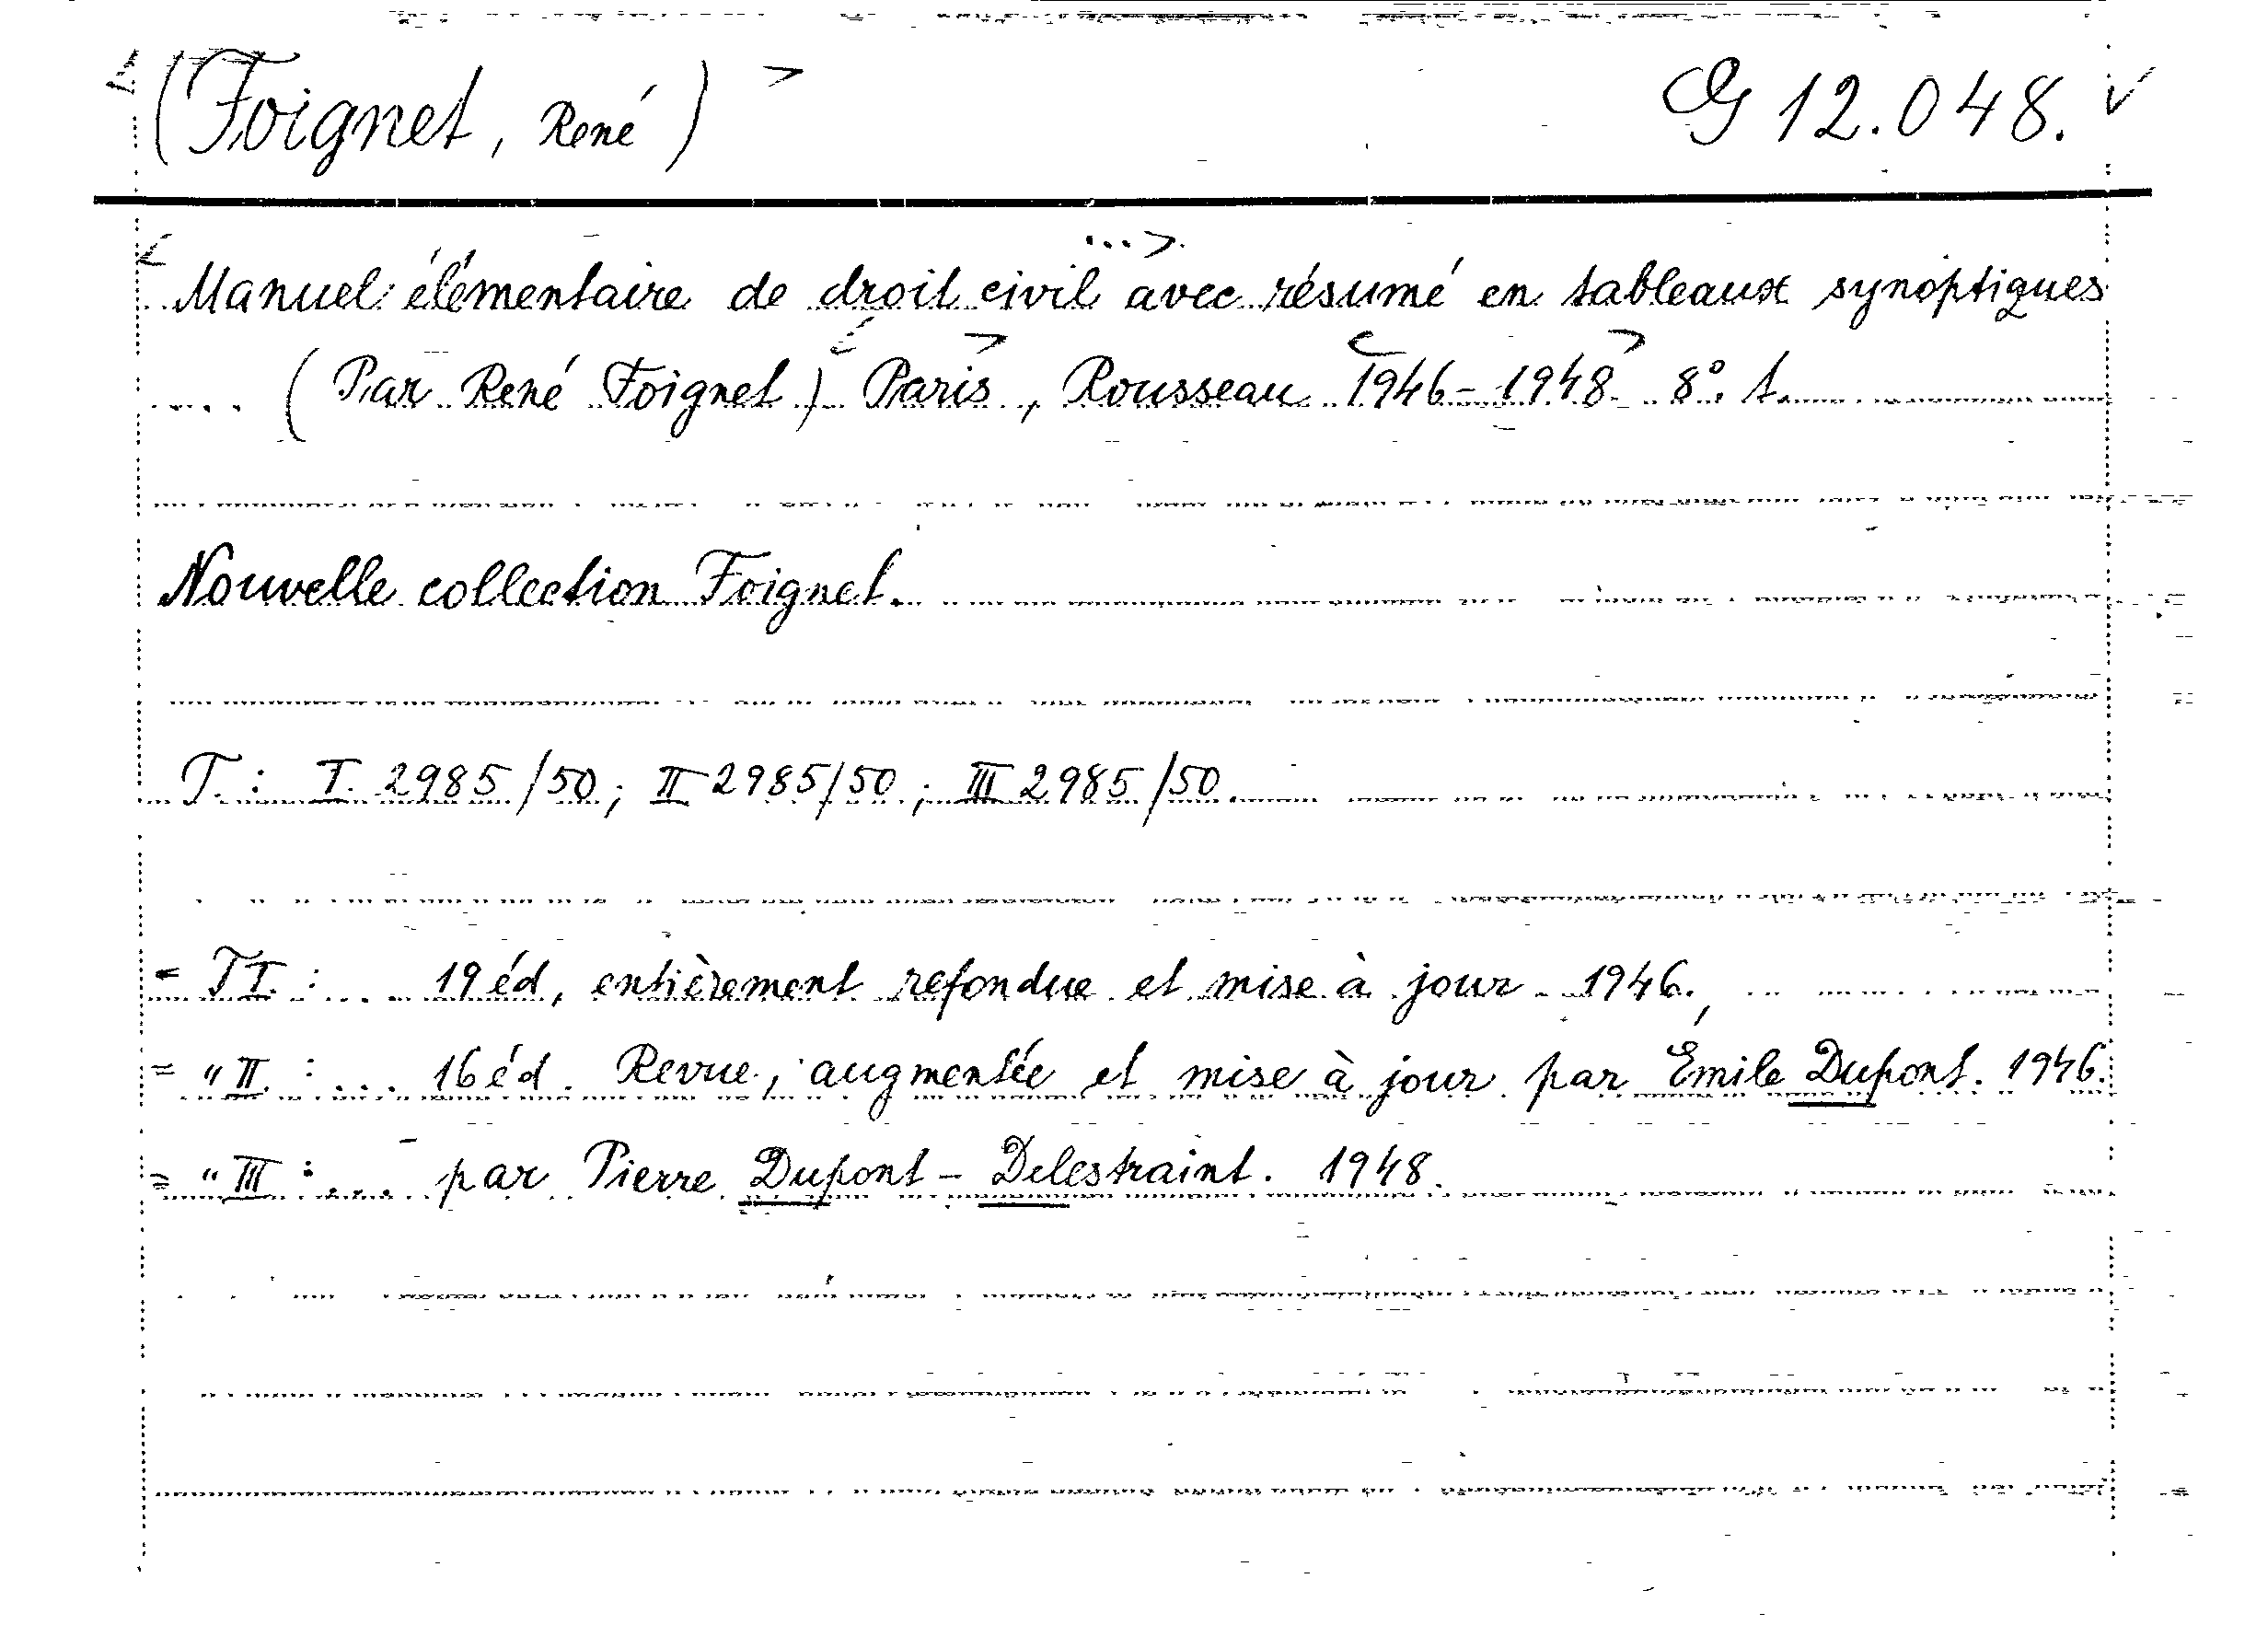 (Foignet, René) G 12.048.
Manuel élémentaire de droit civil avec résumé en tableaux synoptiques
(Par René Foignet) Paris, Rousseau 1946-1948 8° t.
Nouvelle collection Foignet.
T.: I 2985/50; II 2985/50; III 2985/50.
= T I. : ... 19 éd, entièrement refondue et mise à jour. 1946.,
= " II. : ... 16 éd. Revue, augmentée et mise à jour par Émile Dupont. 1946.
= " III : ... par Pierre Dupont-Delestraint. 1948.